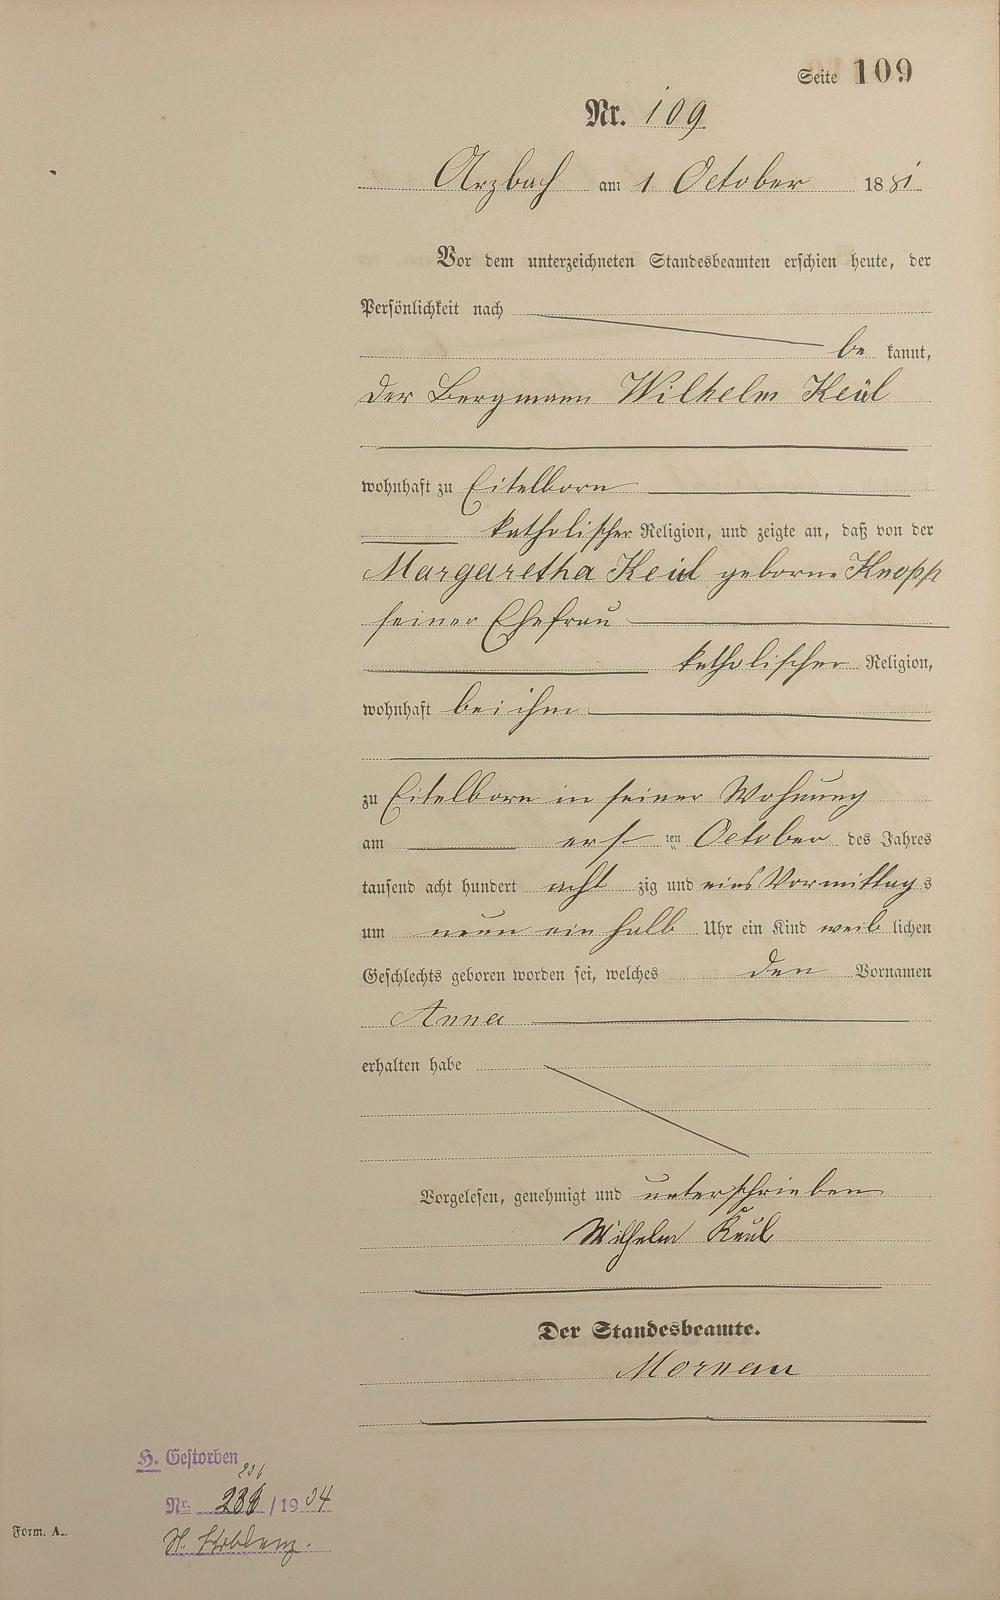 Seite 109
Nr. 109
Arzbach am 1 October 1881
Vor dem unterzeichneten Standesbeamten erschien heute, der
Persönlichkeit nach
be kannt,
der Bergmann Wilhelm Keul
wohnhaft zu Eitelborn
katholischer Religion, und zeigte an, daß von der
Margaretha Keul geborne Knopp
seiner Ehefrau
katholischer Religion,
wohnhaft bei ihm
zu Eitelborn in seiner Wohnung
am erst ten October des Jahres
tausend acht hundert acht zig und eins Vormittags
um neun ein halb Uhr ein Kind weib lichen
Geschlechts geboren worden sei, welches den Vornamen
Anna
erhalten habe
Vorgelesen, genehmigt und unterschrieben
Wilhelm Keul
Der Standesbeamte.
H. Gestorben
236
Nr. /1934
St. Koblenz.
Form. A.